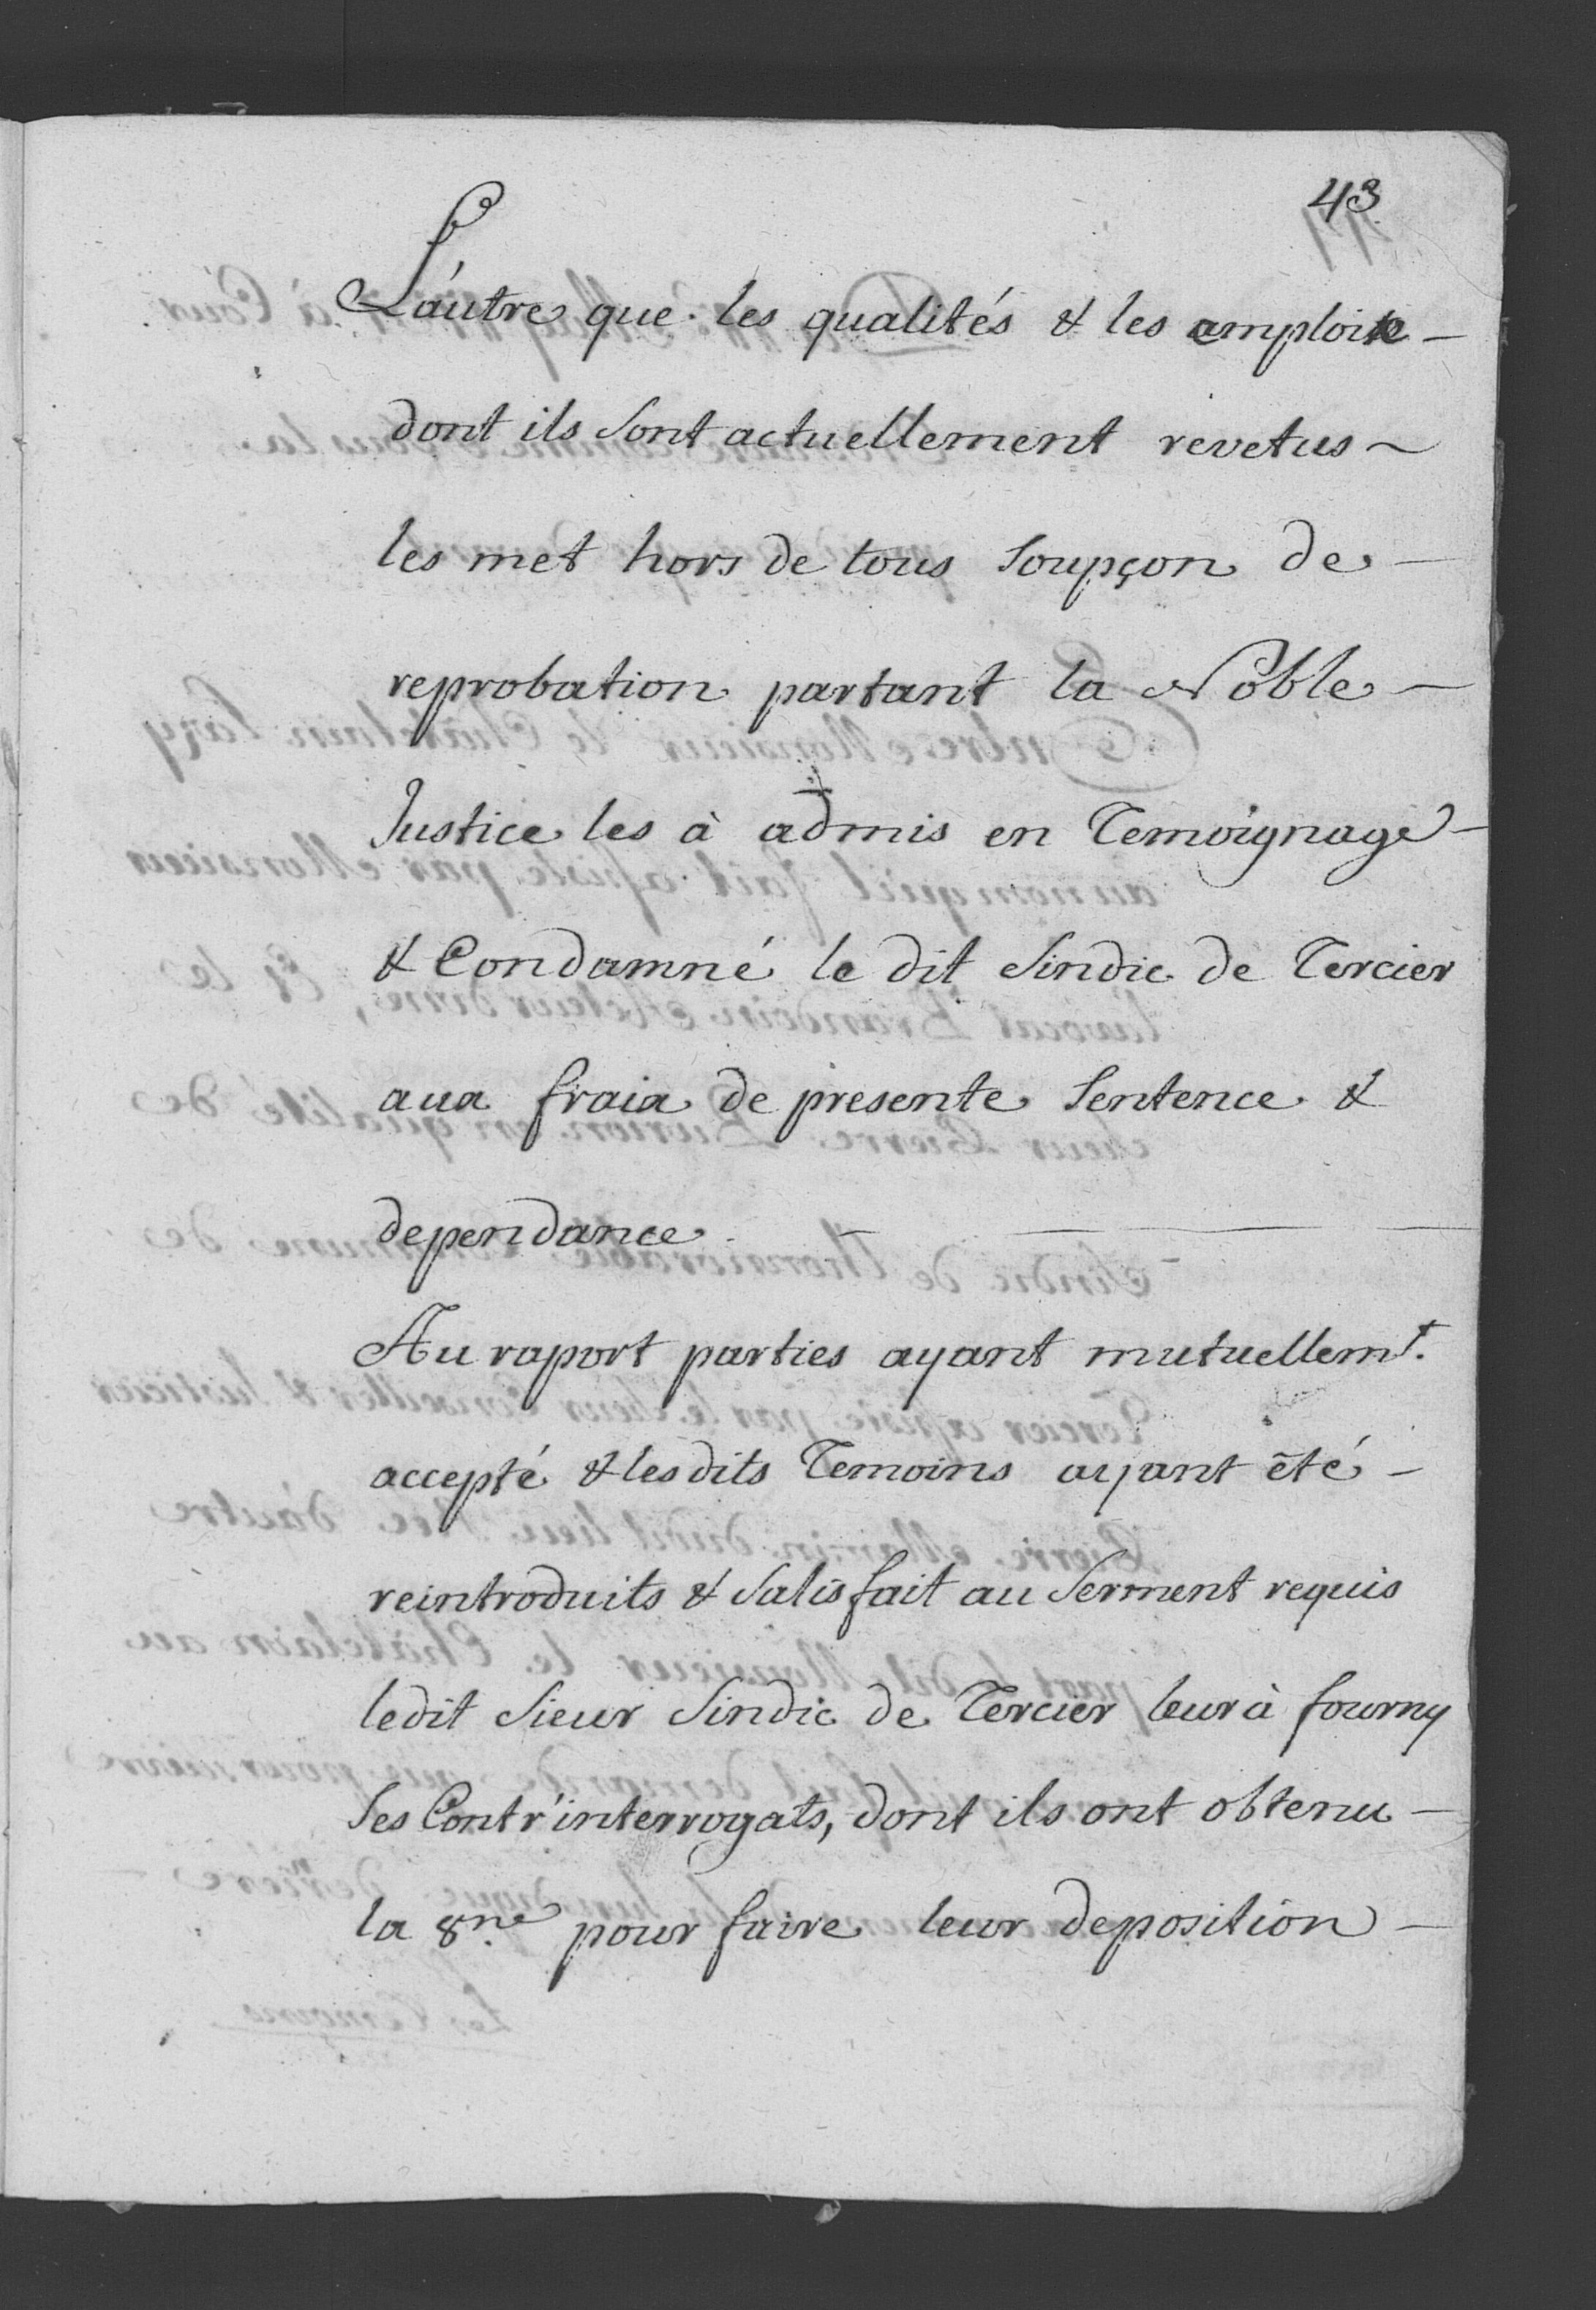 43
L'áutre que les qualités & les amploix –
dont ils sont actuellement revetus ~
les met hors de tous soupçon de –
reprobation partant la Noble –
Justice les à admis en Temoignage –
& Condamné le dit Sindic de Tercier
aux fraix de presente Sentence &
dependance – –
Au raport parties ayant mutuellemt.
accepté & lesdits Temoins ayant êté –
reintroduits & satisfait au Serment requis
ledit Sieur Sindic de Tercier leur à fourny
ses Contr'interrogats, dont ils ont obtenu –
la 8ne pour faire leur deposition –